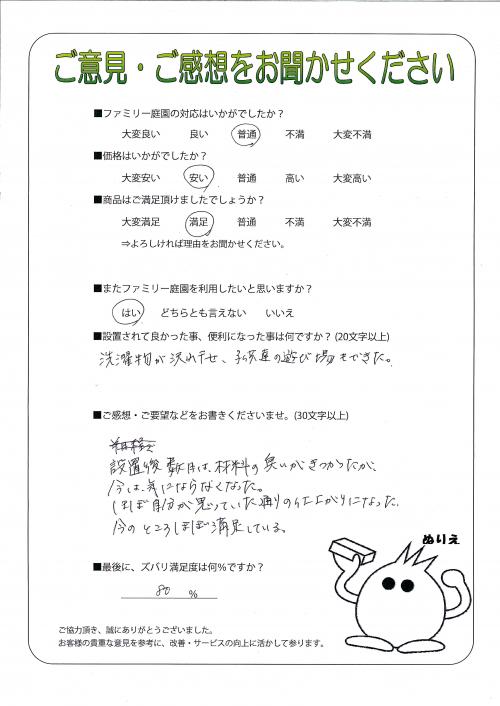 ご意見・ご感想をお聞かせください
■ファミリー庭園の対応はいかがでしたか？
大変良い 良い 普通 不満 大変不満
■価格はいかがでしたか？
大変安い 安い 普通 高い 大変高い
■商品はご満足頂けましたでしょうか？
大変満足 満足 普通 不満 大変不満
⇒よろしければ理由をお聞かせください。
■またファミリー庭園を利用したいと思いますか？
はい どちらとも言えない いいえ
■設置されて良かった事、便利になった事は何ですか？(20文字以上)
洗濯物が沢山干せ、子供達の遊び場もできた。
■ご感想・ご要望などをお書きくださいませ。(30文字以上)
設置後数日は、材料の臭いがきつかったが、
今は、気にならなくなった。
ほぼ自分が思っていた通りの仕上がりになった。
今のところほぼ満足している。
■最後に、ズバリ満足度は何%ですか？
80 %
ぬりえ
ご協力頂き、誠にありがとうございました。
お客様の貴重な意見を参考に、改善・サービスの向上に活かして参ります。